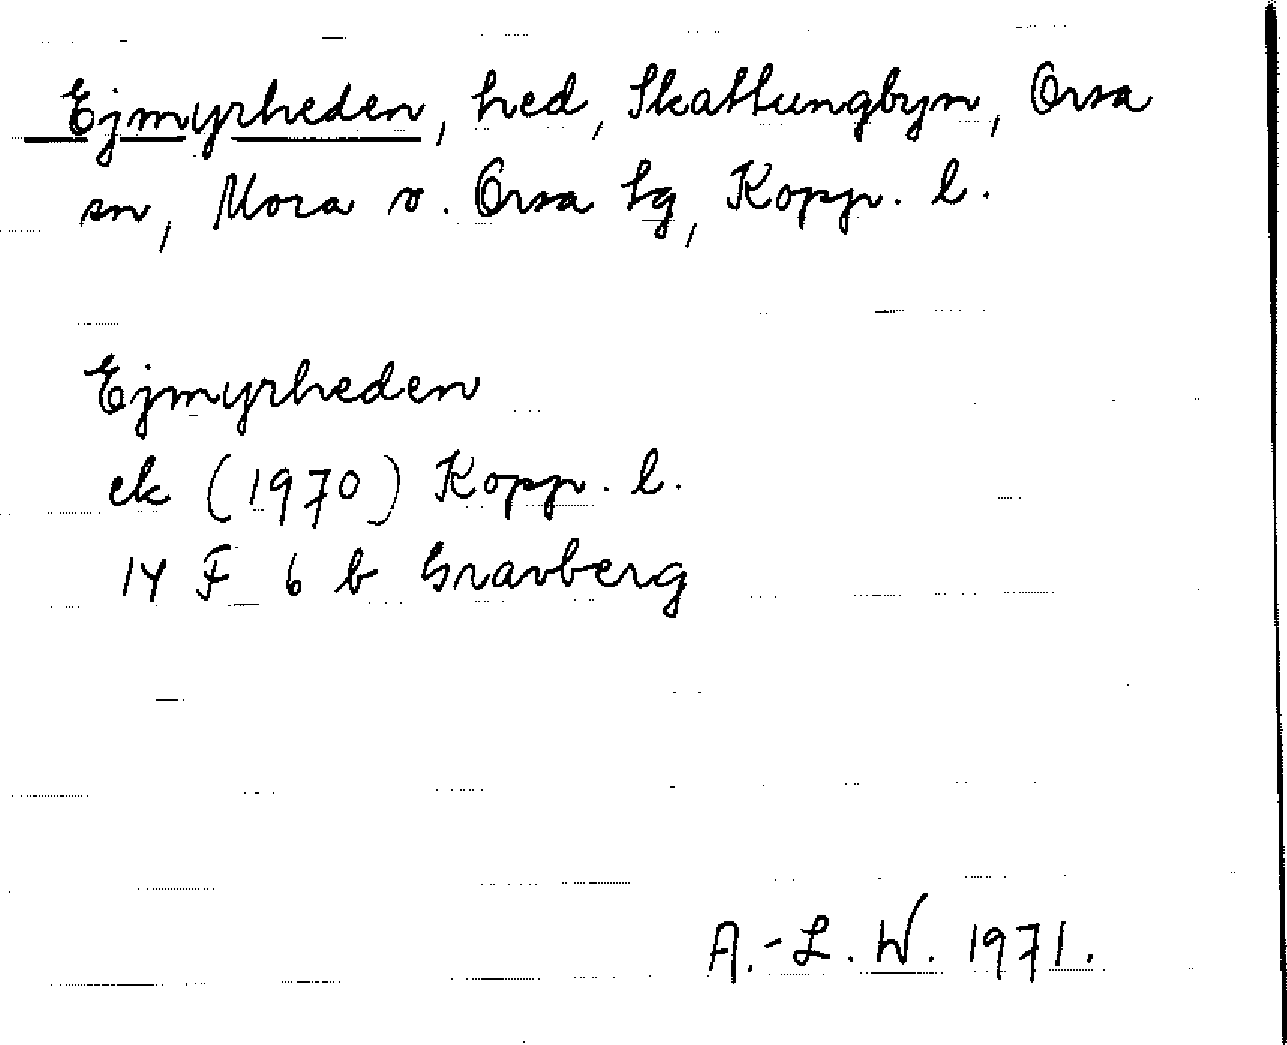 Ejmyrheden, hed, Skattungbyn, Orsa
sn, Mora o. Orsa tg, Kopp. l.
Ejmyrheden
ek (1970) Kopp. l.
14 F 6 b Gravberg
A.-L. W. 1971.